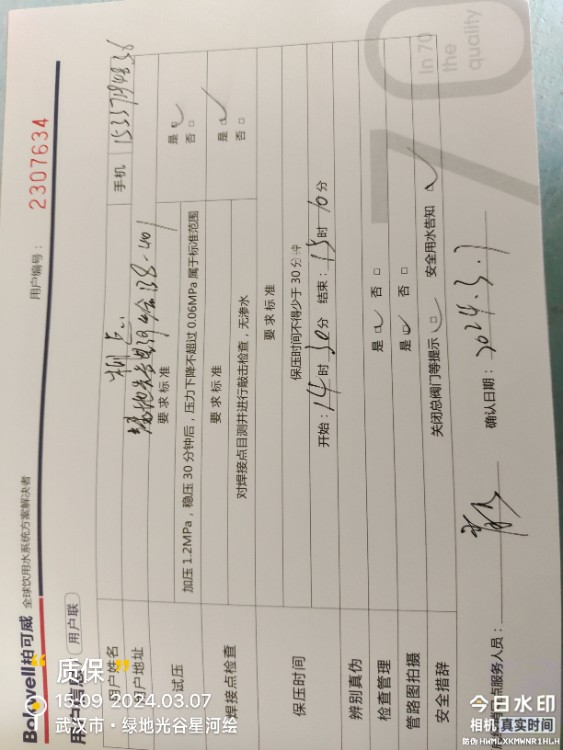 Bolovell柏可威 全球饮用水系统方案解决者
用户编号： 2307634
用户信息 用户联
用户姓名
手机 15337194836
用户地址
试压
要求标准
加压1.2MPa，稳压30分钟后，压力下降不超过0.06MPa属于标准范围
是 否
焊接点检查
要求标准
对焊接点目测并进行敲击检查，无渗水
是 否
保压时间
要求标准
保压时间不得少于30分钟
开始：14时30分 结束：15时10分
辨别真伪
检查管理 是 否
管路图拍摄 是 否
安全措辞 关闭总阀门等提示 安全用水告知
点服务人员：
确认日期：2024.3.7
70
In 70
the
quality
质保
15:09 2024.03.07
武汉市·绿地光谷星河绘
今日水印
相机 真实时间
防伪 HWMLXKMWNR1HLH